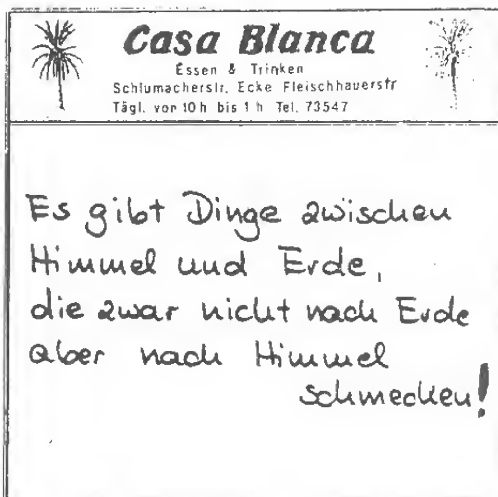 Casa Blanca
Essen & Trinken
Schlumacherstr. Ecke Fleischhauerstr
Tägl. von 10h bis 1h Tel. 73547
Es gibt Dinge zwischen
Himmel und Erde,
die zwar nicht nach Erde
aber nach Himmel
schmecken!